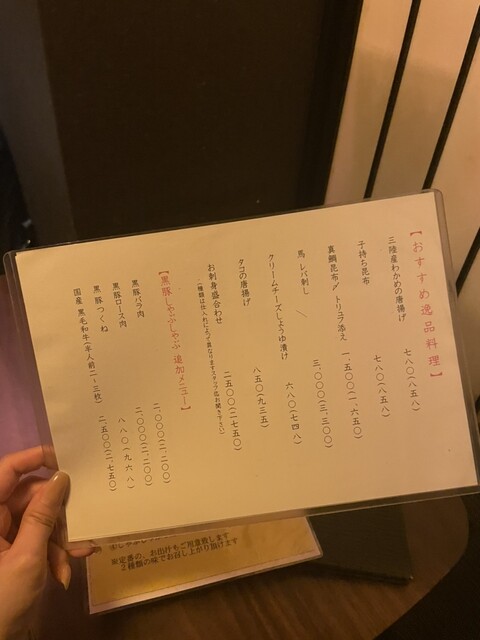 【おすすめ逸品料理】
三陸産わかめの唐揚げ 七八〇(八五八)
子持ち昆布 七八〇(八五八)
真鯛昆布〆 トリュフ添え 一、五〇〇(一、六五〇)
馬 レバ刺し 三、〇〇〇(三、三〇〇)
クリームチーズしょうゆ漬け 六八〇(七四八)
タコの唐揚げ 八五〇(九三五)
お刺身盛合わせ 二五〇〇(二七五〇)
(種類は仕入れによって異なりますスタッフにお聞き下さい)
【黒豚しゃぶしゃぶ 追加メニュー】
黒豚バラ肉 二、〇〇〇(二、二〇〇)
黒豚ロース肉 二、〇〇〇(二、二〇〇)
黒豚つくね 八八〇(九六八)
国産黒毛和牛(半人前二~三枚) 二、五〇〇(二、七五〇)
※定番の、お出汁もご用意致します
2種類の味でお召し上がり頂けます